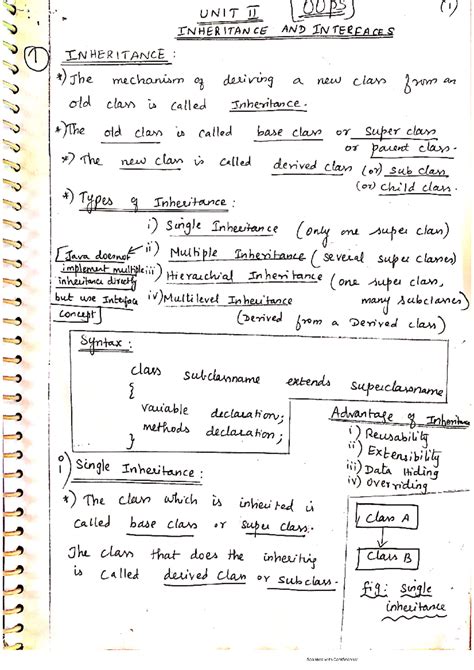 UNIT II
OOPS
(1)
INHERITANCE AND INTERFACES
1
INHERITANCE :
*) The mechanism of deriving a new class from an
old class is called Inheritance.
*) The old class is called base class or super class
or parent class.
*) The new class is called derived class (or) sub class
(or) child class.
*) Types of Inheritance :
i) Single Inheritance (only one super class)
ii) Multiple Inheritance (several super classes)
iii) Hierarchial Inheritance (one super class,
many subclasses)
iv) Multilevel Inheritance
(Derived from a Derived class)
[Java doesnot
implement multiple
inheritance directly
but use Interface
concept]
Syntax :
class subclassname extends superclassname
{
variable declaration;
methods declaration;
}
Advantage of Inheritance
i) Reusability
ii) Extensibility
iii) Data Hiding
iv) overriding
i) Single Inheritance :
*) The class which is inherited is
called base class or super class.
The class that does the inheriting
is called derived class or subclass.
Class A
Class B
fig: Single
inheritance